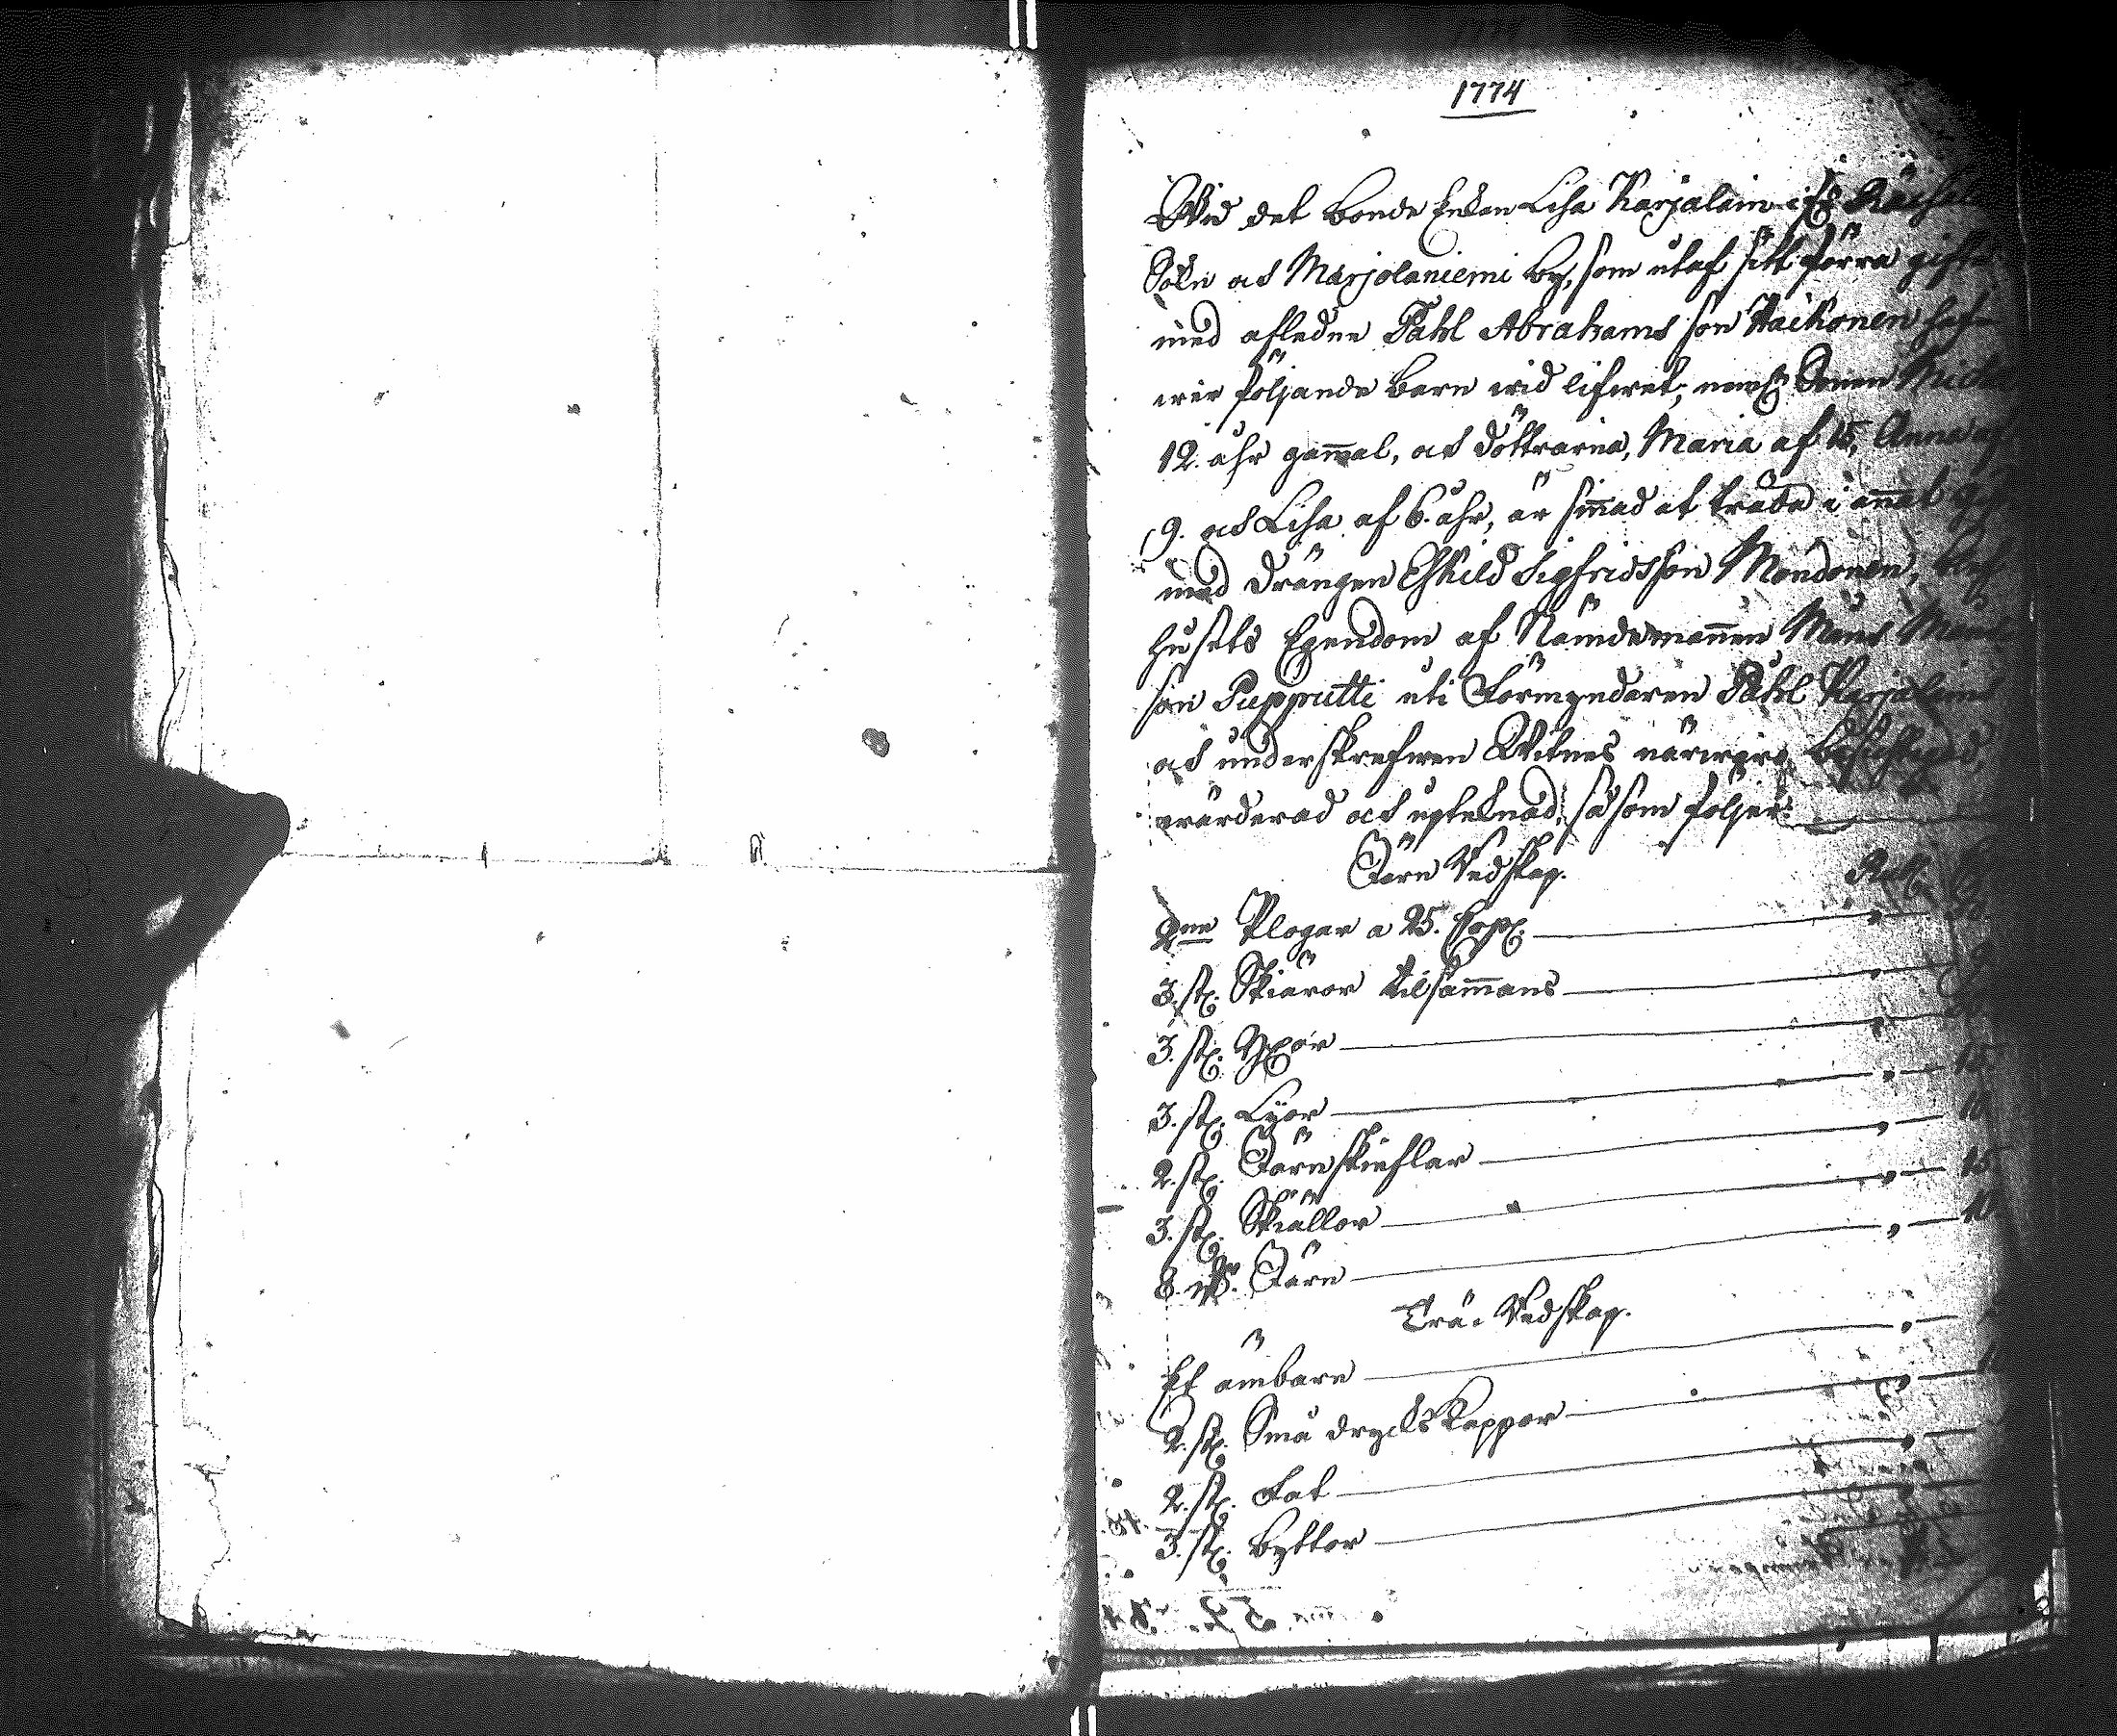 1774
Wid det Bonde Enkan Lisa Karjalain ifr Räisälä
Sokn och Marjolaniemi by, som utaf sitt förra gifte
med afledne Påhl Abrahams son Naikonen haf-
wer följande Barn wid lifwet, neml Sonen Michel
12. åhr gammal, och döttrarna, Maria af 15, Anna af
9. och Lisa af 6. åhr, är sinnad at träda i annat gifte
med drängen Eskild Sigfridsson Mondonen, blef
husets Egendom af Nämdemannen Måns Måns
son Pupputti uti Förmyndaren Påhl Karjalains
och underskrefwen Witnes närwaro besichtigad,
wärderad och upteknad, såsom följer:
Järn Redskap.
Rub.
2ne Plogar a 25. Cop. — " — 50
3. st. Skiäror tilsammans — " —
3. st. Yxor — " —
3. st. Lyor — " — 15
2. st. Järnskieflar — " — 10
3. st. Skiällor — " — 15
8. Järn — " — 10
Trä. Redskap.
Et ämbare — " —
2. st. Små dryckskappor — " —
2. st. Fat — " —
3. st. Byttor —